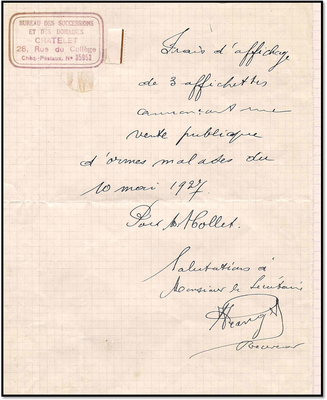 BUREAU DES SUCCESSIONS
ET DES DOMAINES
CHATELET
28, Rue du Collège
Chèq-Postaux, N° 35953
Frais d'affichage
de 3 affichettes
annonçant une
vente publique
d'ormes malades du
10 mai 1927
Pour Mr Hollet.
Salutations à
Monsieur le Secrétaire
Receveur